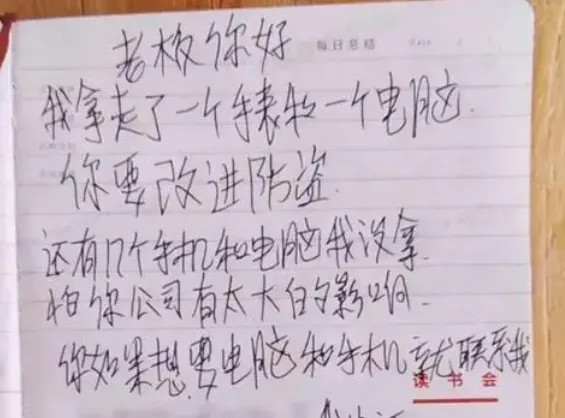 老板你好
每日总结 Date
我拿走了一个手表和一个电脑.
你要改进防盗.
还有几个手机和电脑我没拿.
怕你公司有太大的影响.
你如果想要电脑和手机就联系我
读书会